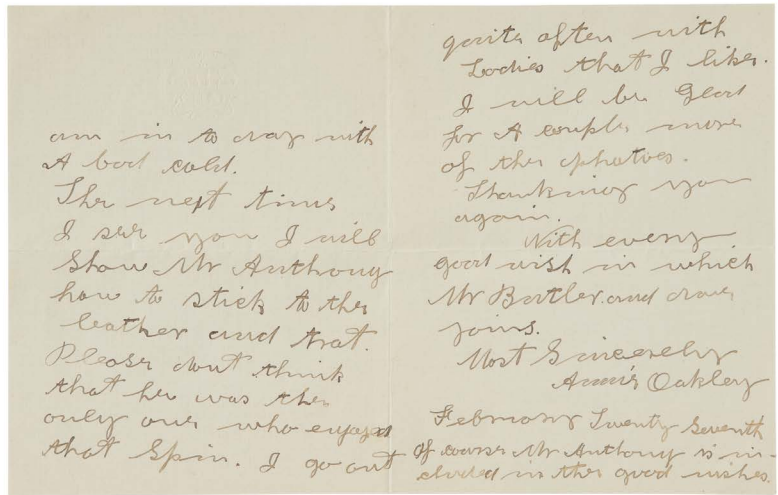 am in to day with
A bad cold.
The next time
I see you I will
Show Mr Anthony
how to stick to the
leather and that.
Please dont think
that he was the
only one who enjoyed
that Spin. I go out
quite often with
Ladies that I like.
I will be Glad
for A couple more
of the photoes.
Thanking you
again.
With every
good wish in which
Mr Butler and dave
joins.
Most Sincerely
Annie Oakley
February Twenty Seventh
Of course Mr Anthony is in-
cluded in the good wishes.